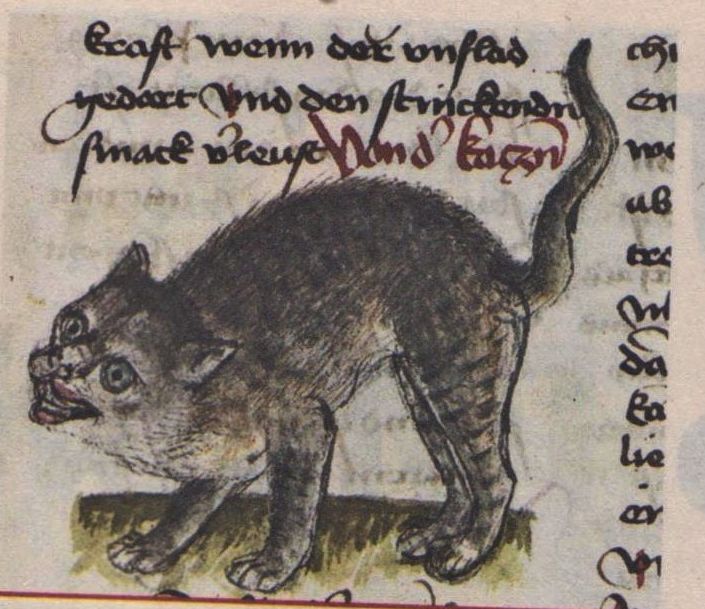 kraft wenn der vnflad
gedort Vnd den stinckendn
smack v'leust Von d' katzn
chi
En
we
ab
tre
da
ka
lie
er